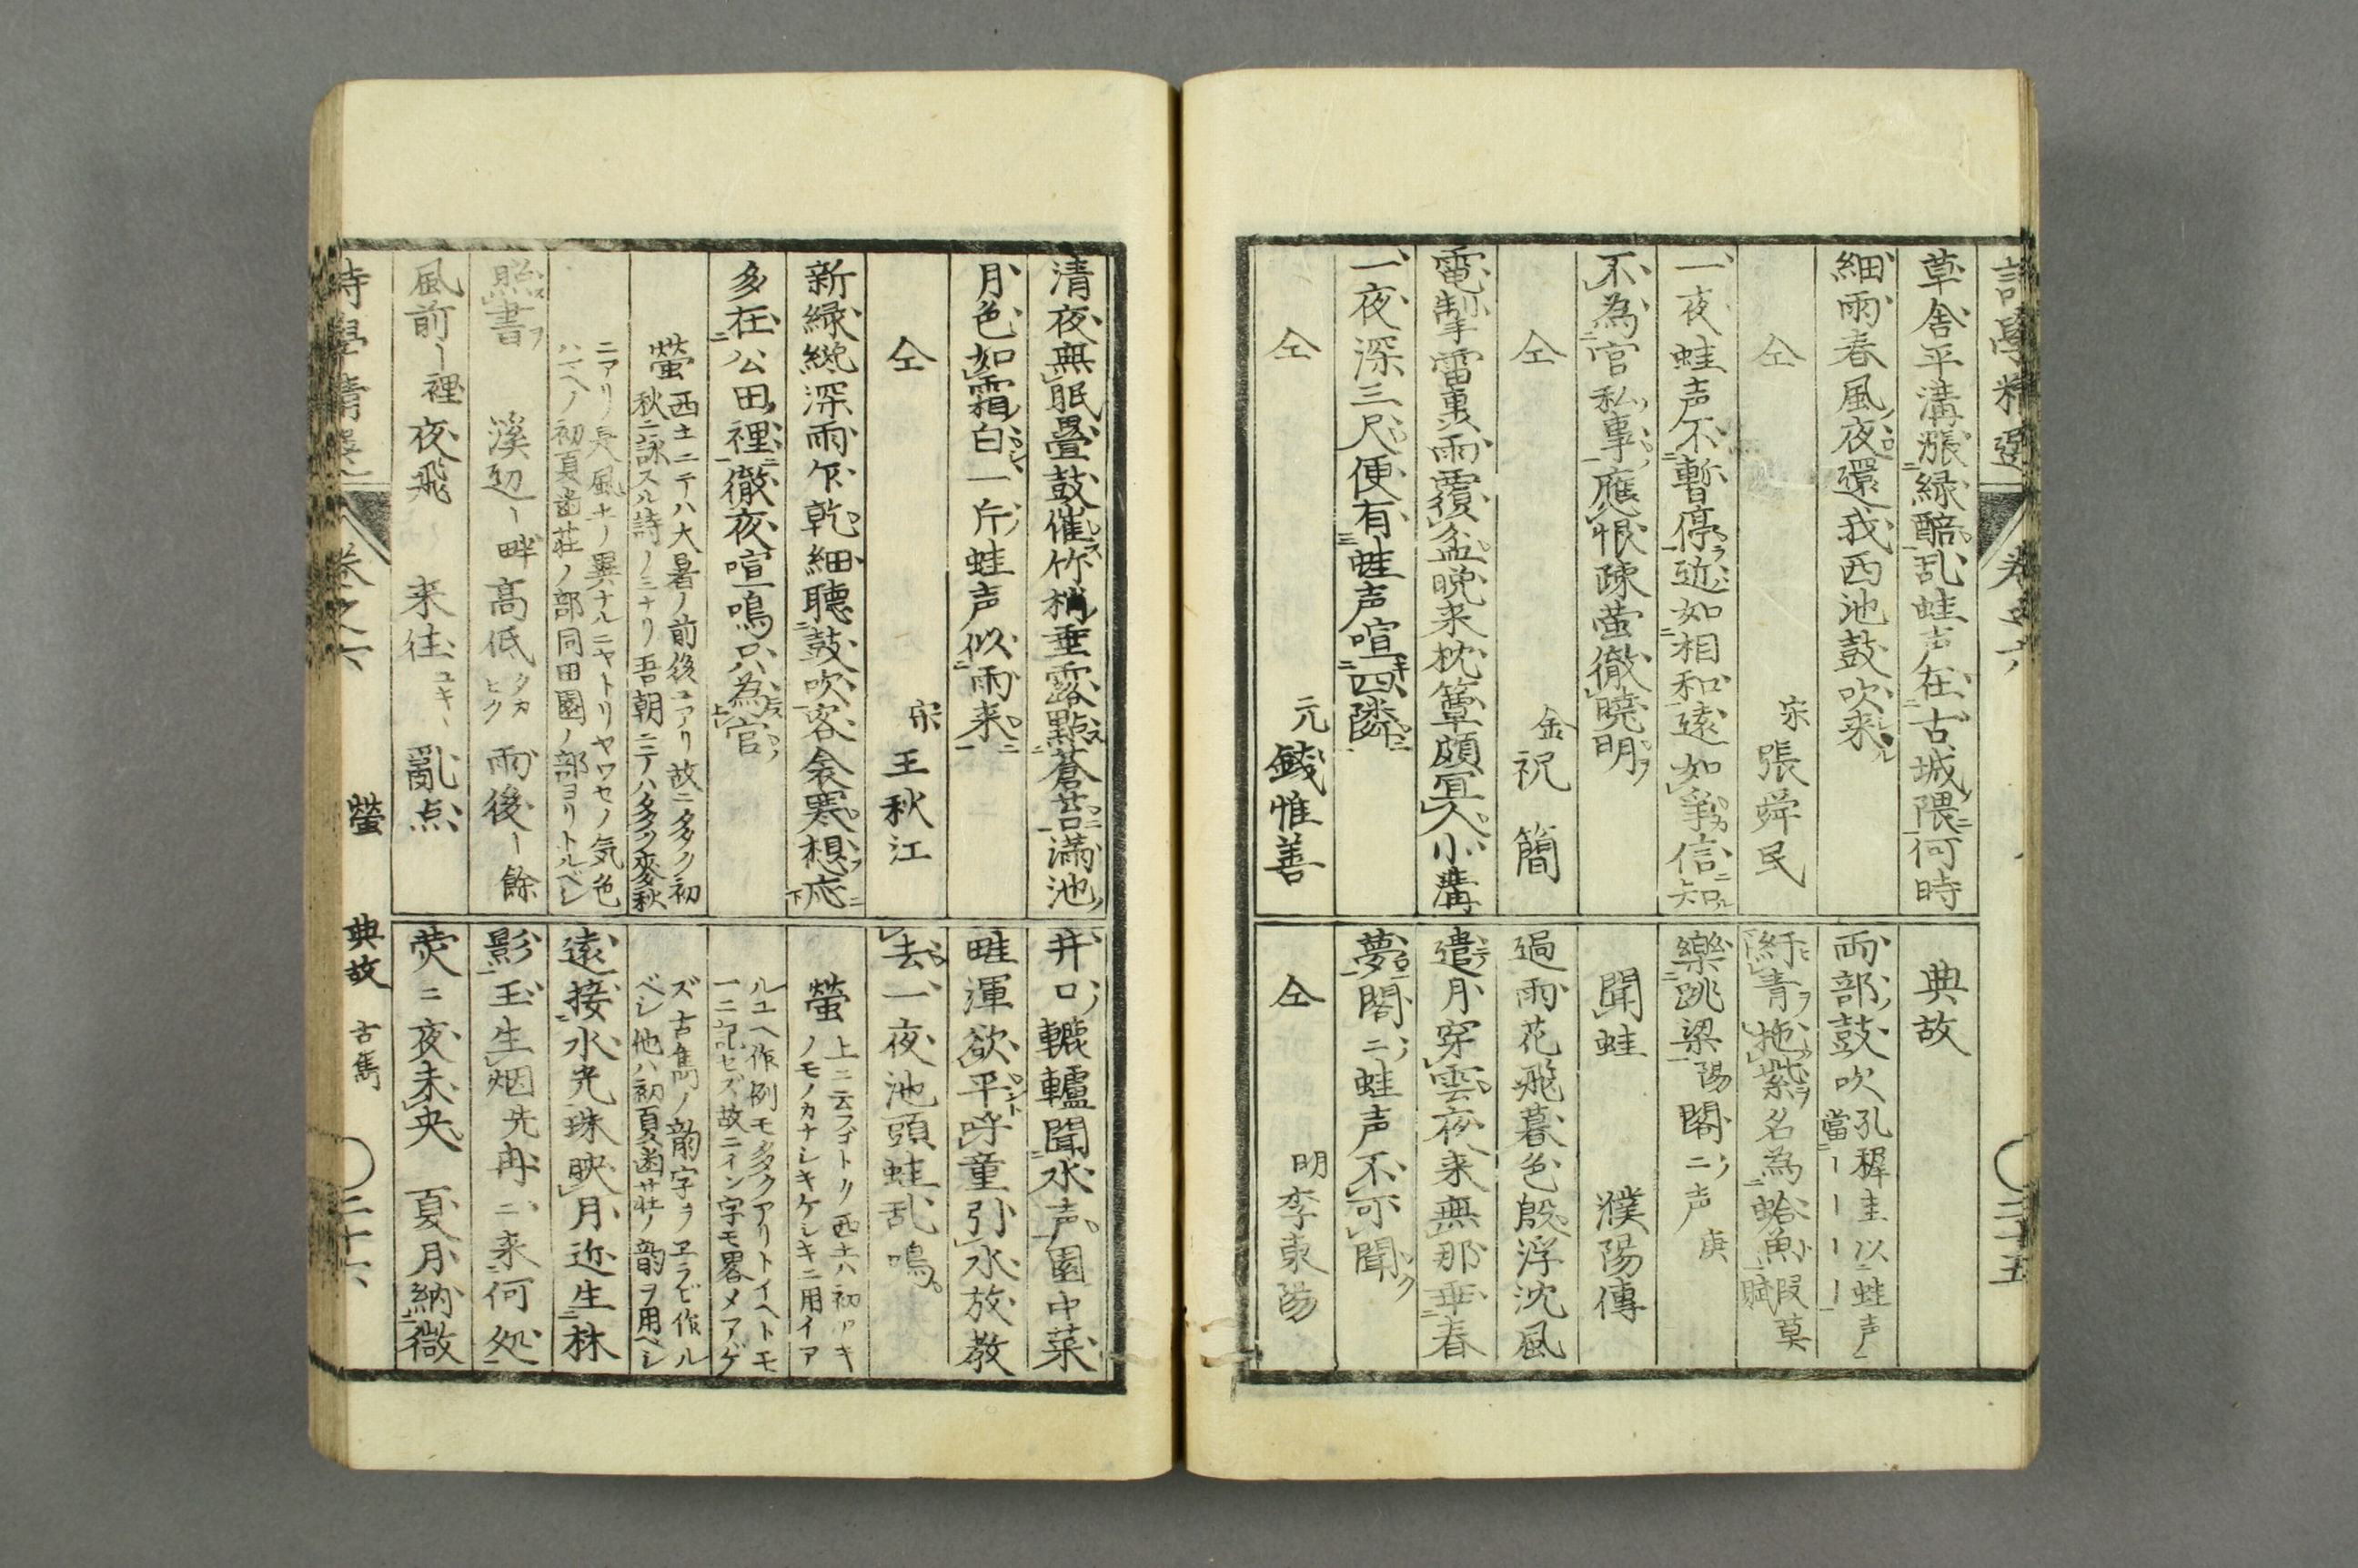 詩學精選 卷之六 ○二十五
草舎平溝漲緑醅乱蛙声在古城隈何時
細雨春風夜還我西池鼓吹来
仝 宋 張舜民
一夜蛙声不暫停近如相和遠如爭信知
不為官私事應恨疎螢徹曉明
仝 金 祝簡
電掣雷轟雨覆盆晩来枕簟頗宜人小溝
一夜深三尺便有蛙声喧四隣
仝 元 錢惟善
典故
両部鼓吹 孔稺圭以蛙声
當ーーーー
紆青拖紫名為蛤魚 蝦蟇
賦
樂跳梁 陽 閣ニ声 庚
聞蛙 濮陽傳
過雨花飛暮色殷浮沈風
遣月穿雲夜来無那垂春
夢閣ニ蛙声不可聞
仝 明 李東陽
清夜無眠畳鼓催竹梢垂露點蒼苔満池
月色如霜白一片蛙声似雨来
仝 宋 王秋江
新緑纔深雨乍乾細聴鼓吹客衾寒想応
多在公田裡徹夜喧鳴只為官
螢 西土ニテハ大暑ノ前後ニアリ故ニ多ク初
秋ニ詠スル詩ノミナリ吾朝ニテハ多ク麥秋
ニアリノ是風土ノ異ナルニヤトリヤワセノ気色
ハマヘノ初夏歯荘ノ部同田園ノ部ヨリトルベシ
照書 溪辺ー畔 高低 タカヒク 雨後ー餘
風前ー裡 夜飛 来往 ユキー 亂点
井口轆轤聞水声園中菜
畦渾欲平呼童引水放教
去一夜池頭蛙乱鳴
螢 上ニ云フゴトリ西土ハ初アキ
ノモノカナシキケシキニ用イア
ルユヘ作例モ多クアリトイヘトモ
一ニ記セズ故ニイン字モ畧メアゲ
ズ古雋ノ韵字ヲヱラビ作ル
ベシ他ハ初夏歯荘ノ韵ヲ用ベシ
遠接水光珠映月近生林
影玉生烟先冉ニ来何処
熒ニ夜未央 夏月納微
詩學精選 卷之六 螢 典故 古雋 ○二十六